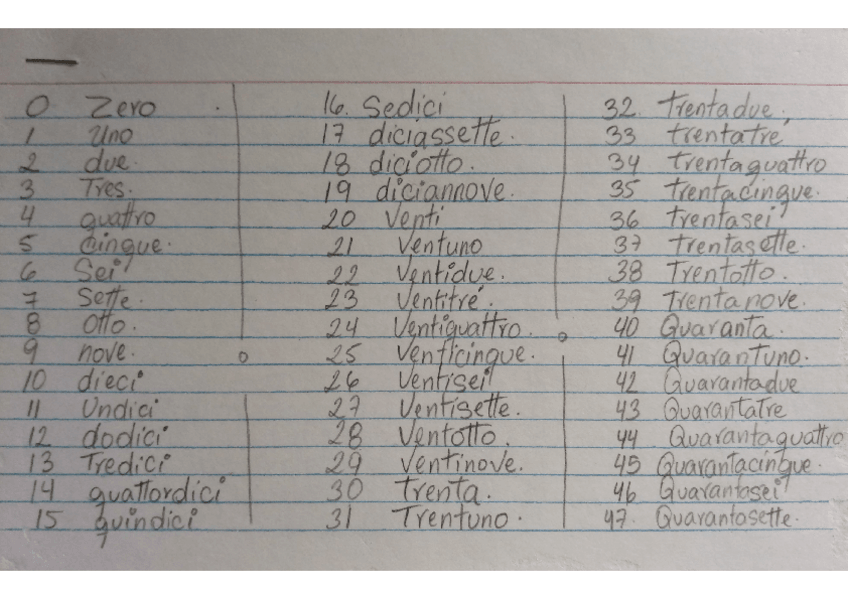 0 Zero
1 Uno
2 due.
3 Tres.
4 quattro
5 Cinque.
6 Sei
7 Sette.
8 Otto.
9 nove.
10 dieci
11 Undici
12 dodici
13 Tredici
14 quattordici
15 quindici
16. Sedici
17 diciassette.
18 diciotto.
19 diciannove.
20 Venti
21 Ventuno
22 Ventidue.
23 Ventitré.
24 Ventiquattro.
25 Venticinque.
26 Ventisei
27 Ventisette.
28 Ventotto.
29 Ventinove.
30 Trenta.
31 Trentuno.
32. Trentadue.
33 trentatré
34 trentaquattro
35 trentacinque.
36 trentasei
37 trentasette.
38 Trentotto.
39 Trentanove.
40 Quaranta.
41 Quarantuno.
42 Quarantadue
43 Quarantatre
44 Quarantaquattro
45 Quarantacinque.
46 Quarantasei
47. Quarantasette.